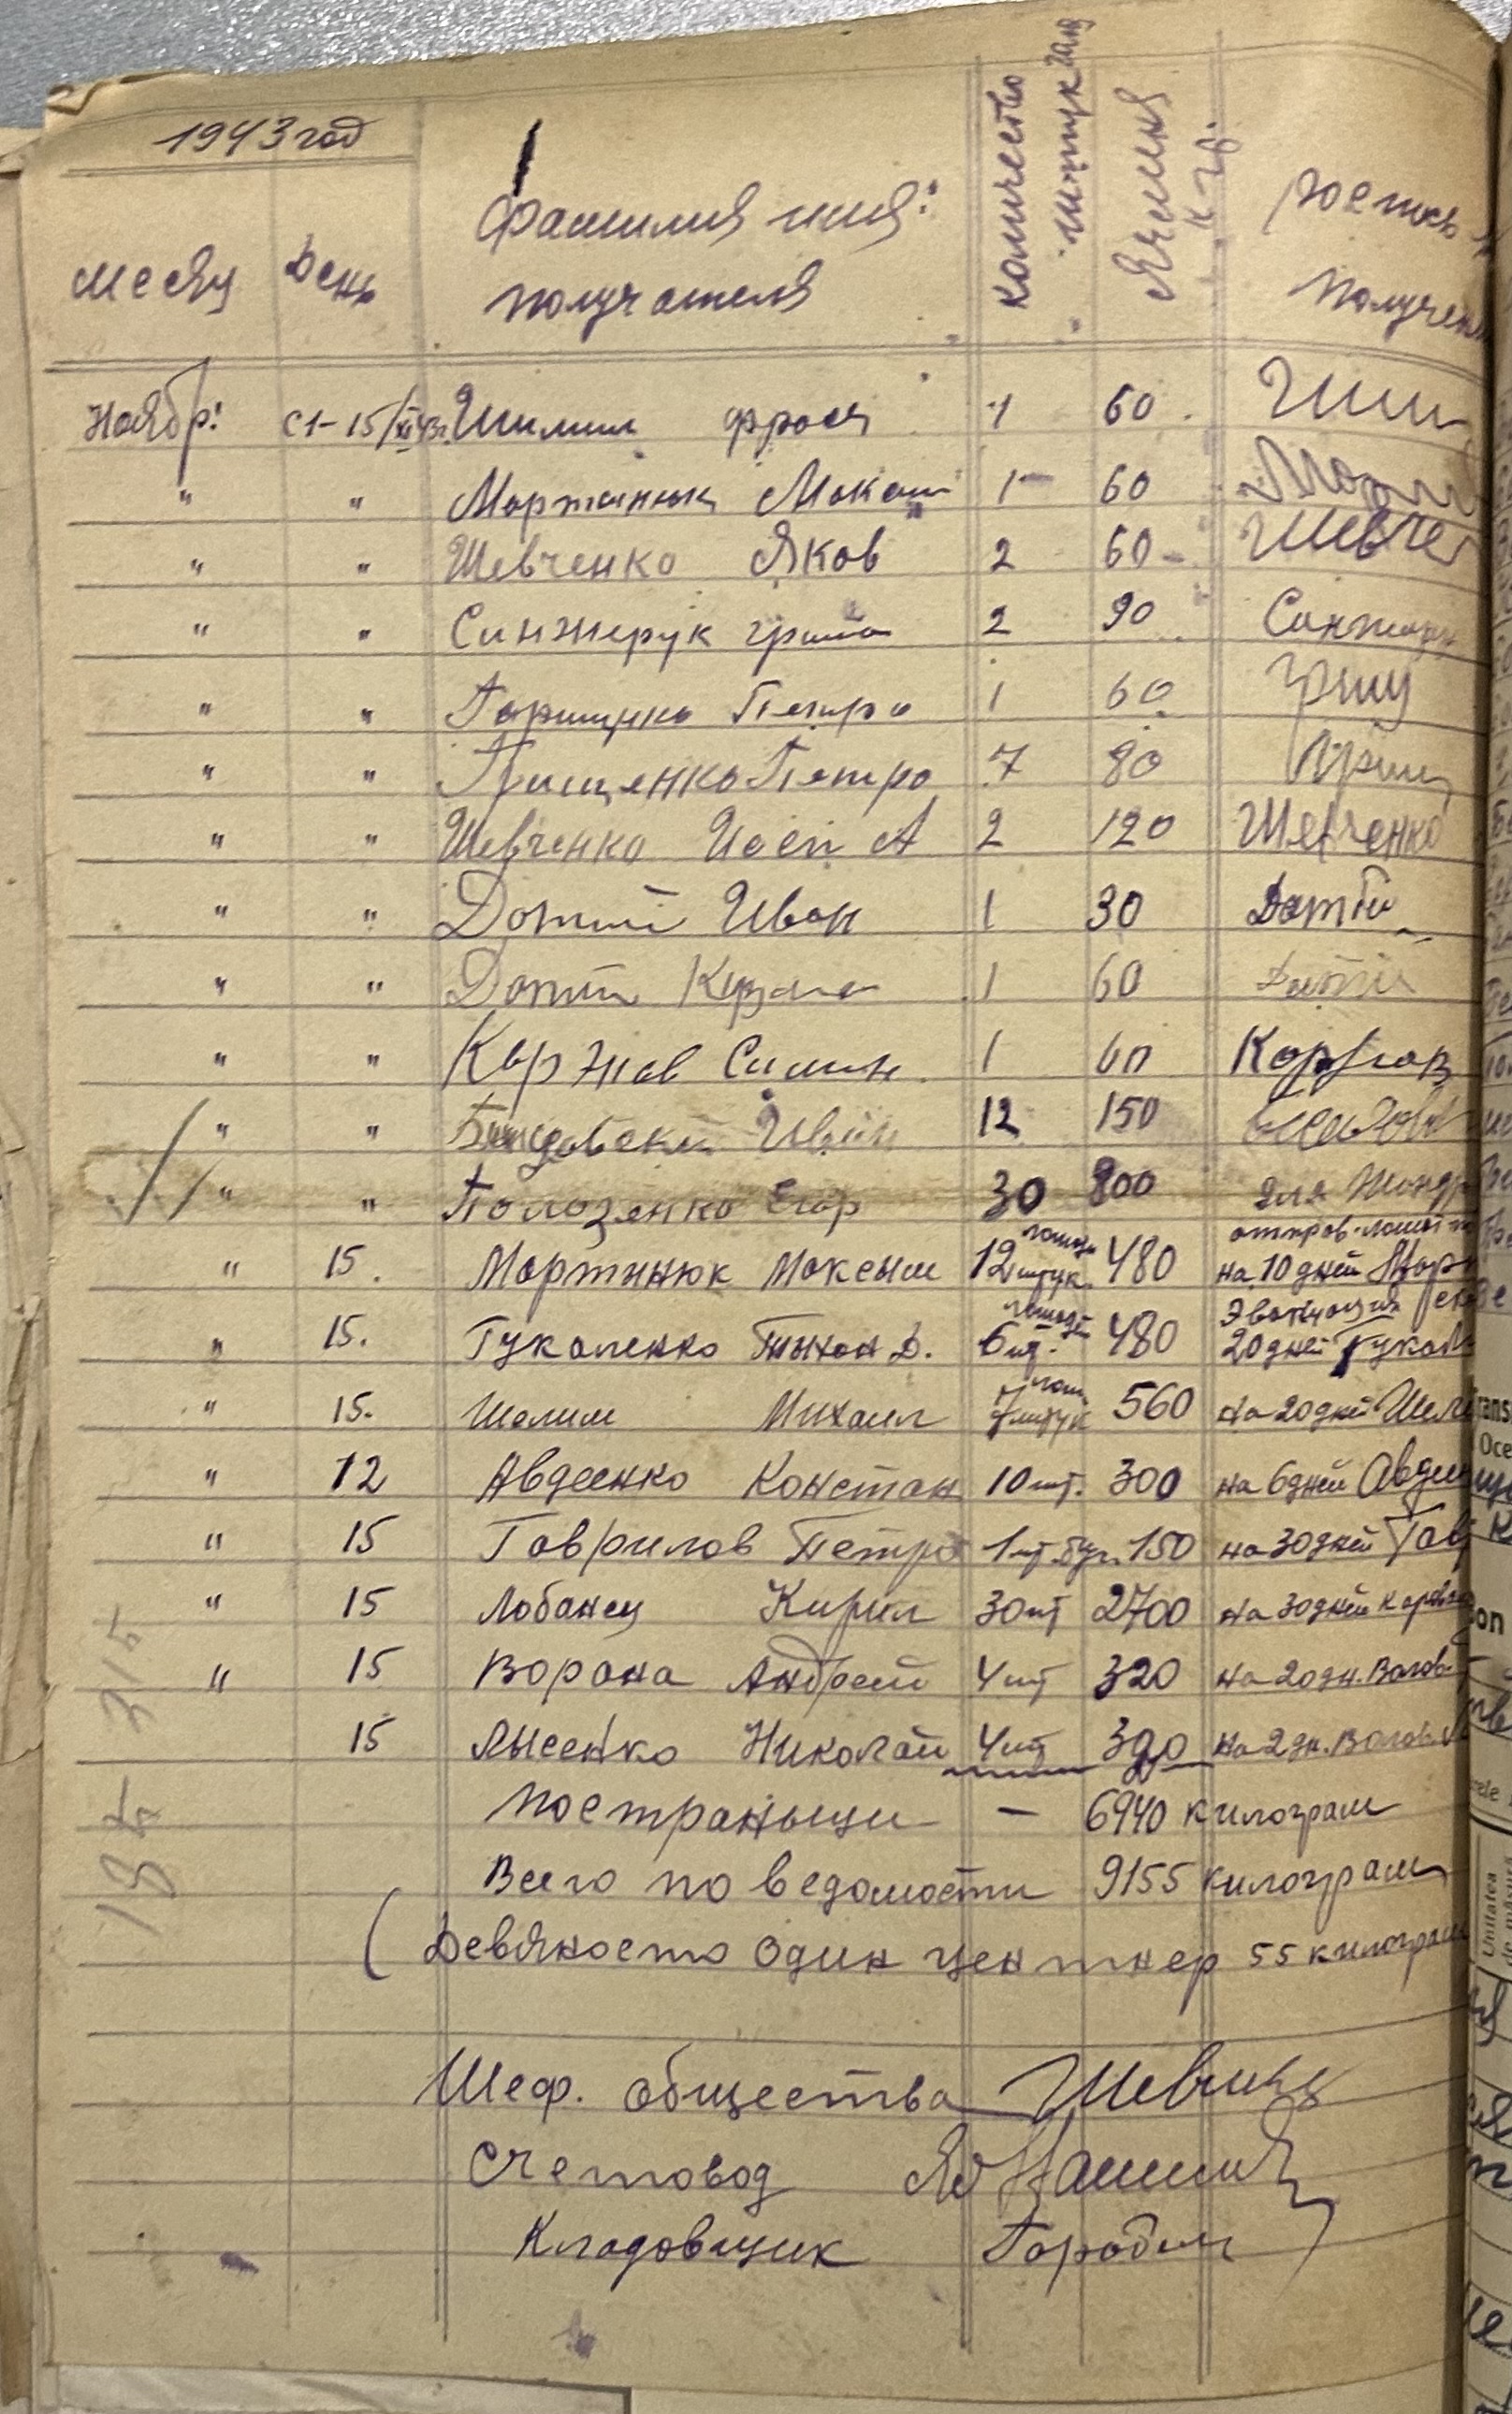 1943 год
месяц День Фамилия имя: получателя Количество штук Ячменя кгр. получен
Ноябр: с 1-15/XI 43г. Шилим Фрося 1 60
" " Мартинюк Макси 1 60
" " Шевченко Яков 2 60 Шевче
" " Синжерук гриша 2 90
" " Гарищенко Петро 1 60 Грищ
" " Грищенко Петро 7 80 Грищ
" " Шевченко Иосип А 2 120 Шевченко
" " Дотий Иван 1 30 Дотий
" " Дотий Кузма 1 60
" " Коржов Симин 1 60 Коржов
" " Иван 12 150
" " Полозенко Егор 30 800 для Жанд
" 15. Мартинюк Максым 12 штук лошади 480 отправ. лошад на 10 дней Мар
" 15. Гукаленко Тихон Д. 6 шт. лошадей 480 Эвакуация 20 дней Гукал
" 15. Шелим Михаил 7 штук лош 560 на 20 дней Шел
" 12 Авдеенко Констан 10 шт. 300 на 6 дней Авде
" 15 Гаврилов Петро 1 шт. буг. 150 на 30 дней Гав
" 15 Лобанец Кирил 30 шт 2700 на 30 дней коров
" 15 Ворона Андрей 4 шт 320 на 20 дн. Волов
15 Лысенко Николай 4 шт 320 на 2 дн. Волов.
По страныци — 6940 килограм
Всего по ведомости 9155 килограм
(Девяносто один центнер 55 килограм
Шеф. общества Шевченк
Счетовод
Кладовщик Городни
315
187